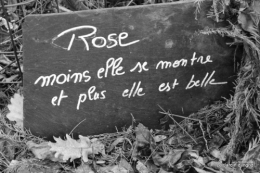 Rose
moins elle se montre
et plus elle est belle